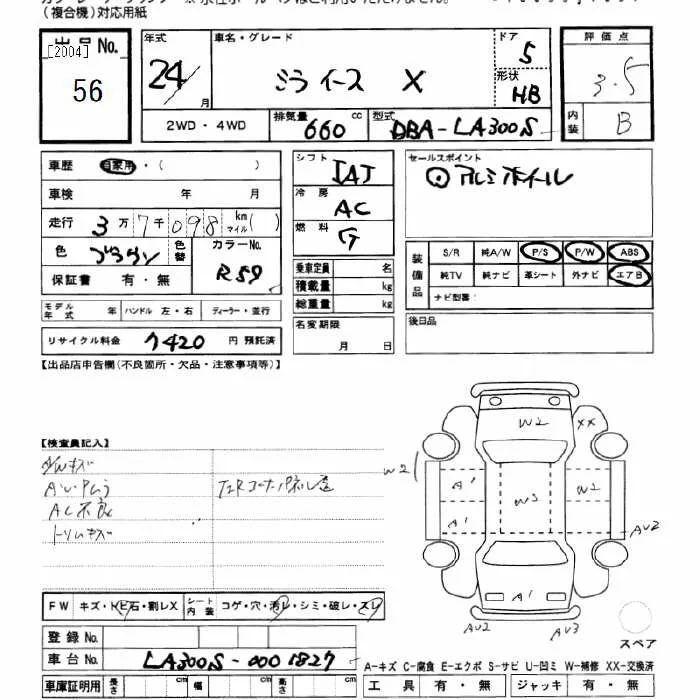 （複合機）対応用紙
出品No.
[2004]
56
年式
24/
月
車名・グレード
ミラ イース X
ドア
5
形状
HB
2WD・4WD
排気量
660
cc
型式
DBA-LA300S
評価点
3.5
内装
B
車歴
自家用・（ ）
車検 年 月
走行 3万7千098 km マイル( )
色 ブラウン
色替
カラーNo.
R59
保証書 有・無
モデル年式 年
ハンドル 左・右
ディーラー・並行
リサイクル料金 7420 円 預託済
シフト
IAT
冷房
AC
燃料
G
乗車定員 名
積載量 kg
総重量 kg
名変期限
月 日
セールスポイント
⊙アルミホイール
装備品
S/R 純A/W P/S P/W ABS
純TV 純ナビ 革シート 外ナビ エアB
ナビ型番
後日品
【出品店申告欄(不良箇所・欠品・注意事項等)】
【検査員記入】
AC不良
トリムキズ
W2
XX
W2
A'
W3
W2
A1
AU2
A1
AU2
AU3
スペア
FW キズ・トビ石・割レX
シート内装
コゲ・穴・汚レ・シミ・破レ・スレ
登録No.
車台No. LA300S-0001827
車庫証明用
長さ cm
幅 cm
高さ cm
A-キズ C-腐食 E-エクボ S-サビ U-凹ミ W-補修 XX-交換済
工具 有・無
ジャッキ 有・無